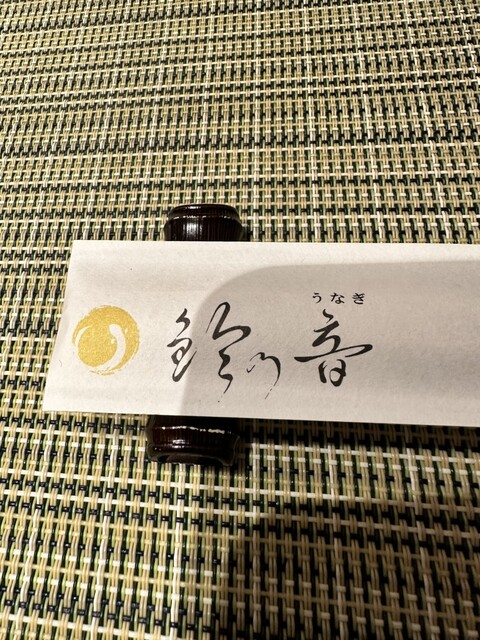 うなぎ
鈴の音